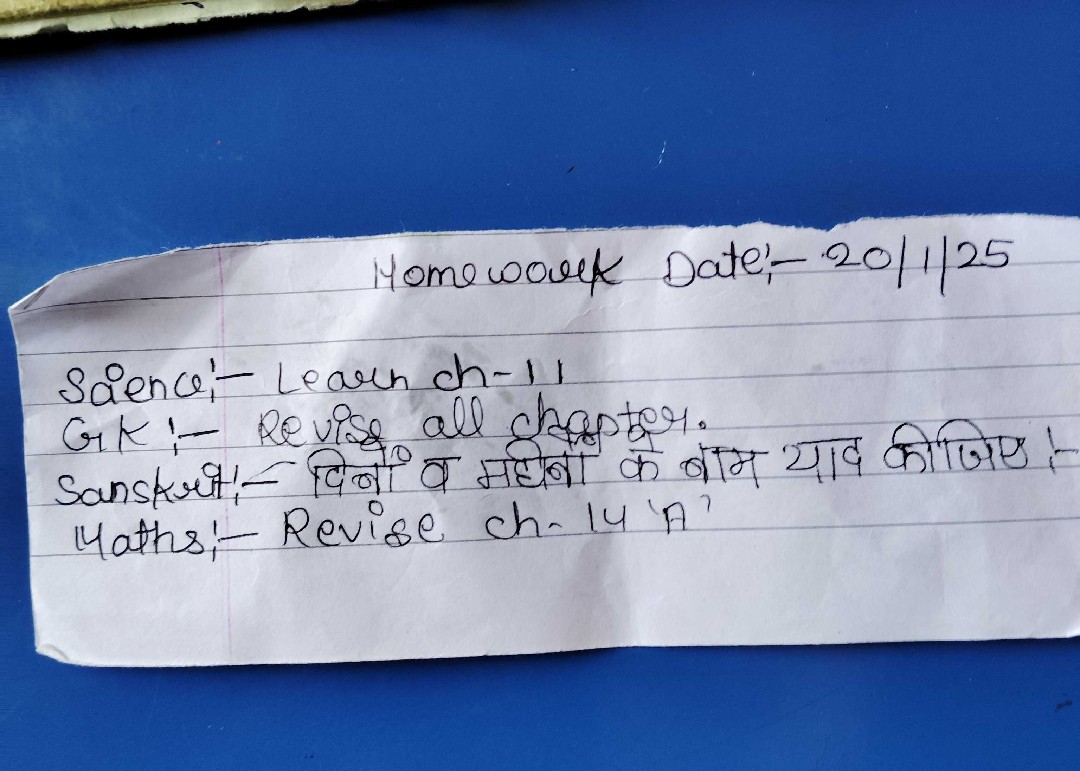 Homework Date:- 20/1/25
Science:- Learn ch-11
GK:- Revise all chapter.
Sanskrit:- दिनों व महीनों के नाम याद कीजिए :-
Maths:- Revise ch- 14 'A'